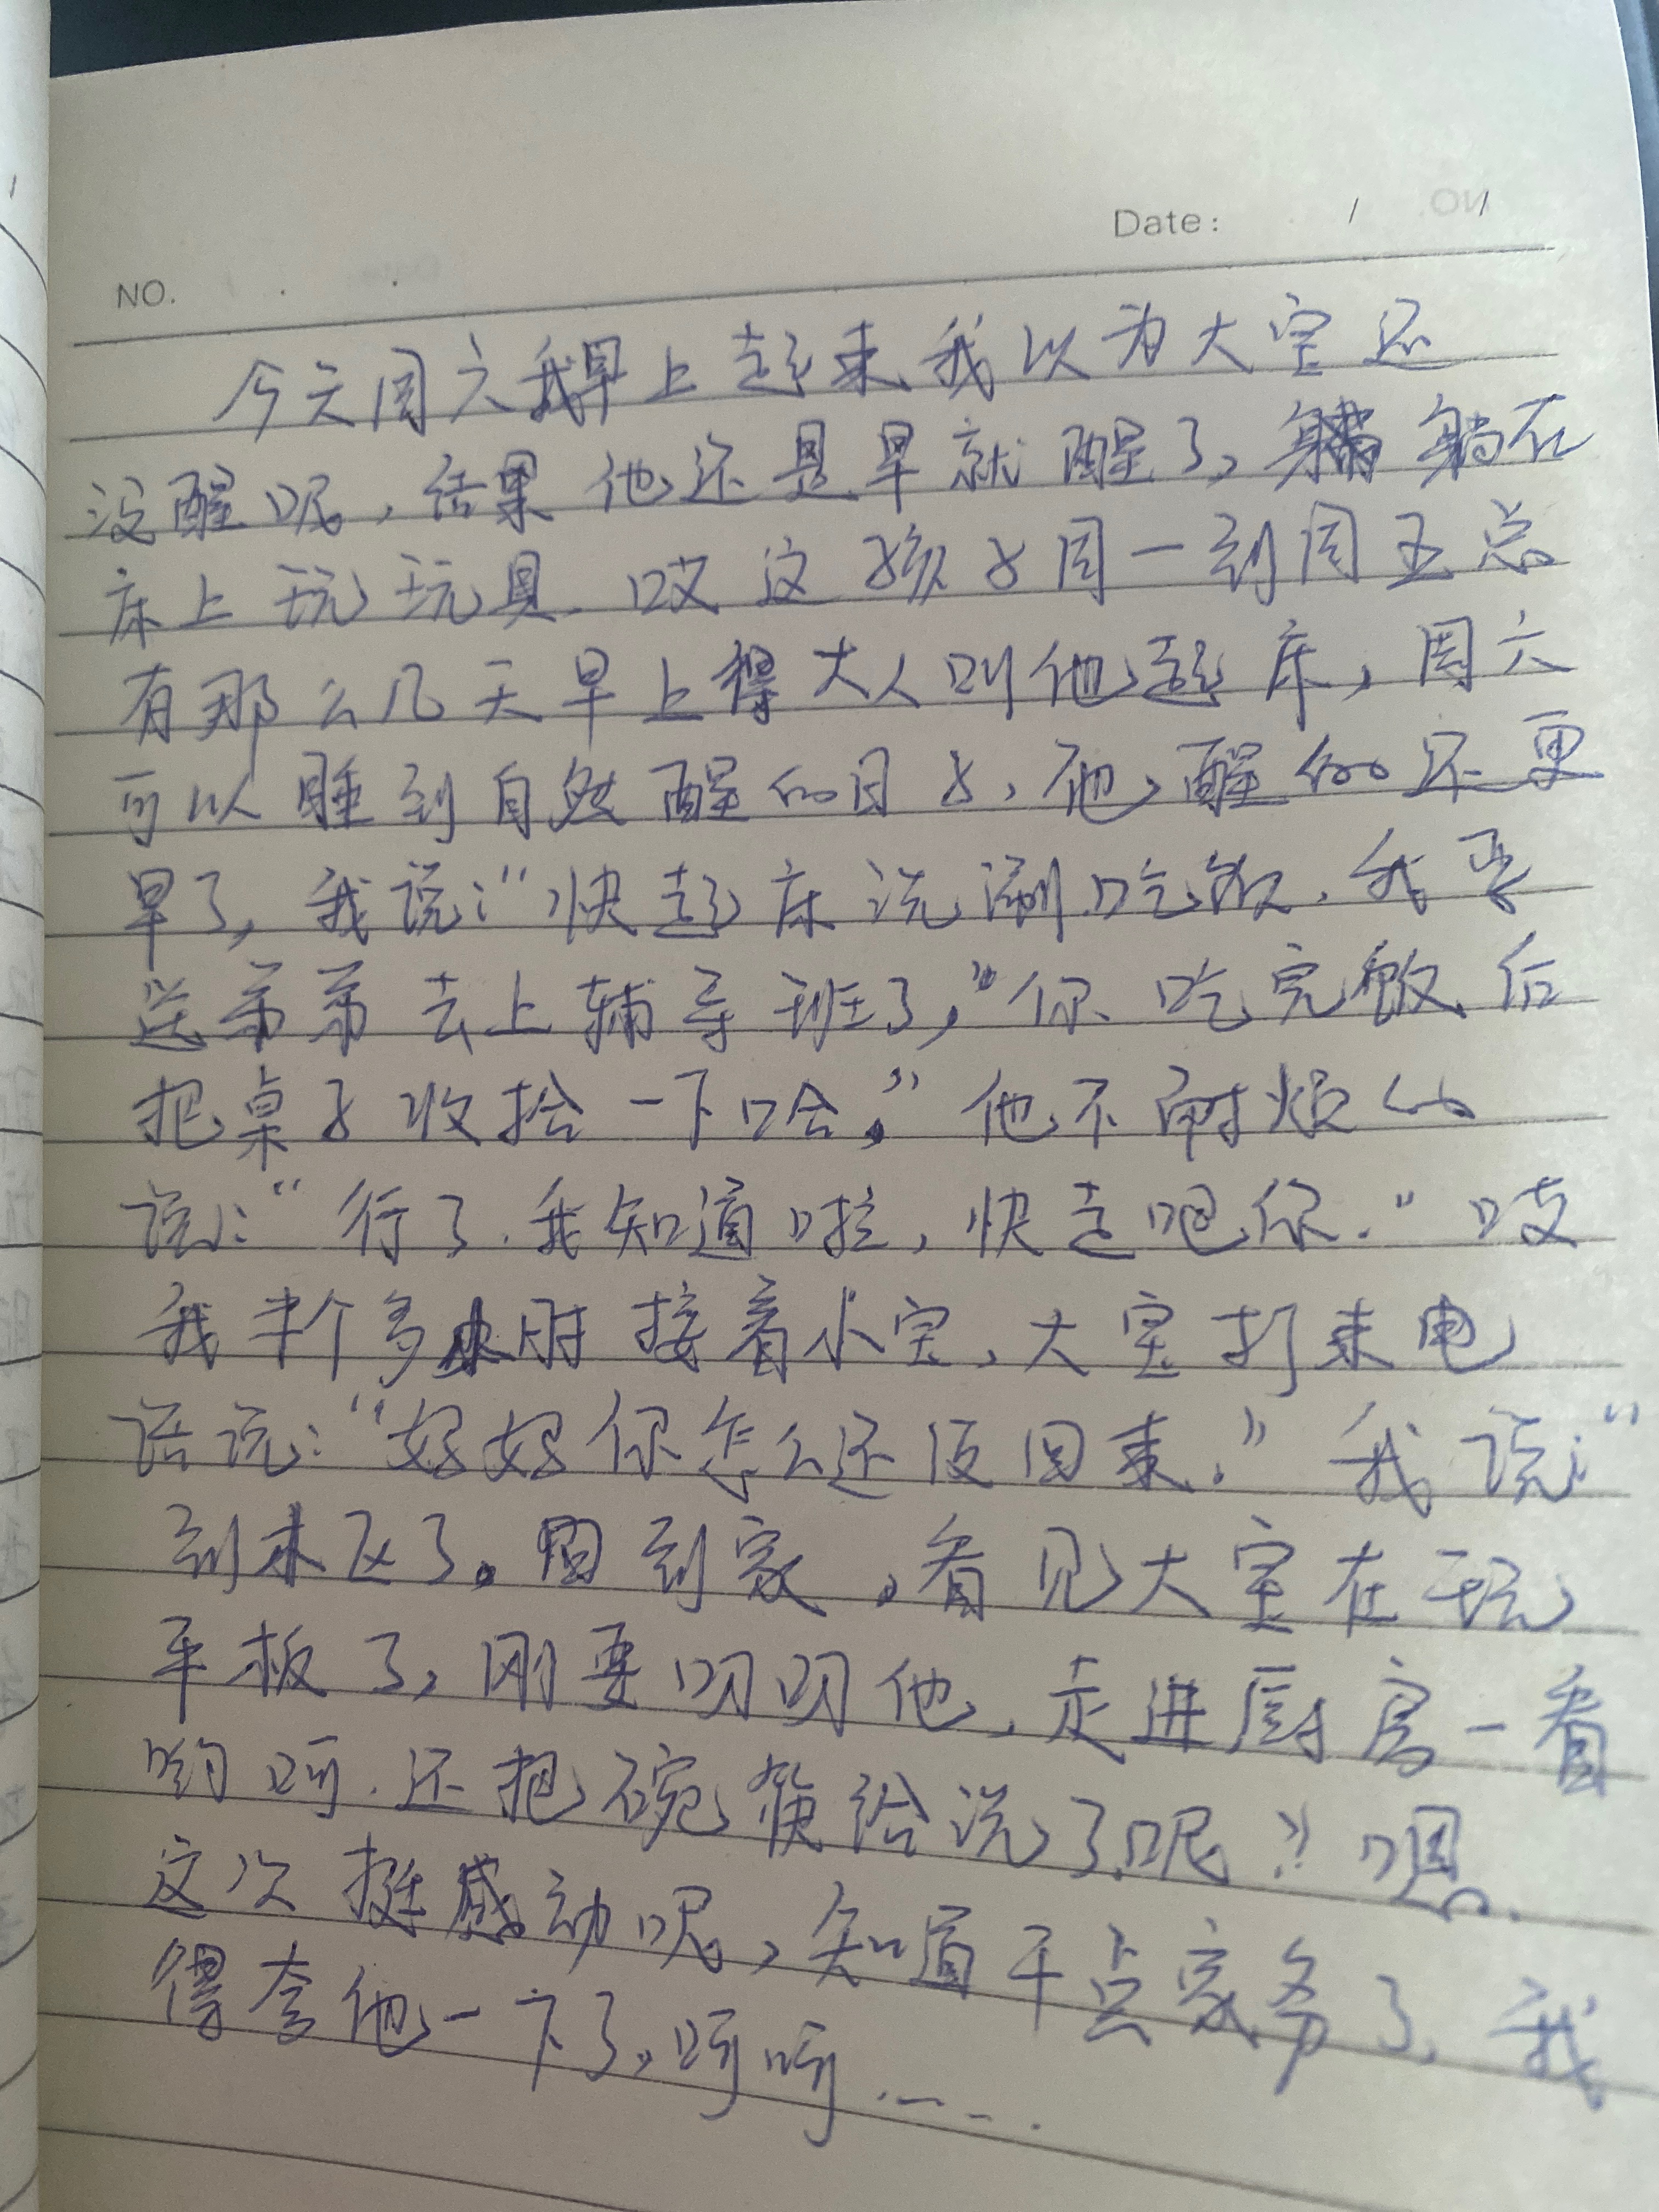 Date: / /
NO.
今天周六我早上起来我以为大宝还
没醒呢，结果他还是早就醒了，躺在
床上玩玩具.哎这孩子周一到周五总
有那么几天早上得大人叫他起床，周六
可以睡到自然醒的日子，他醒的还更
早了，我说：“快起床洗涮吃饭.我要
送弟弟去上辅导班了，”你吃完饭后
把桌子收拾一下哈，”他不耐烦的
说：“行了.我知道啦，快走吧你.”哎
我半个多小时接着小宝，大宝打来电
话说：“妈妈你怎么还没回来.”我说：“
到小区了。回到家，看见大宝在玩
平板了，刚要叨叨他，走进厨房一看
哟呵.还把碗筷给洗了呢？”嗯.
这次挺感动呢，知道干点家务了.我
得夸他一下了，呵呵.....